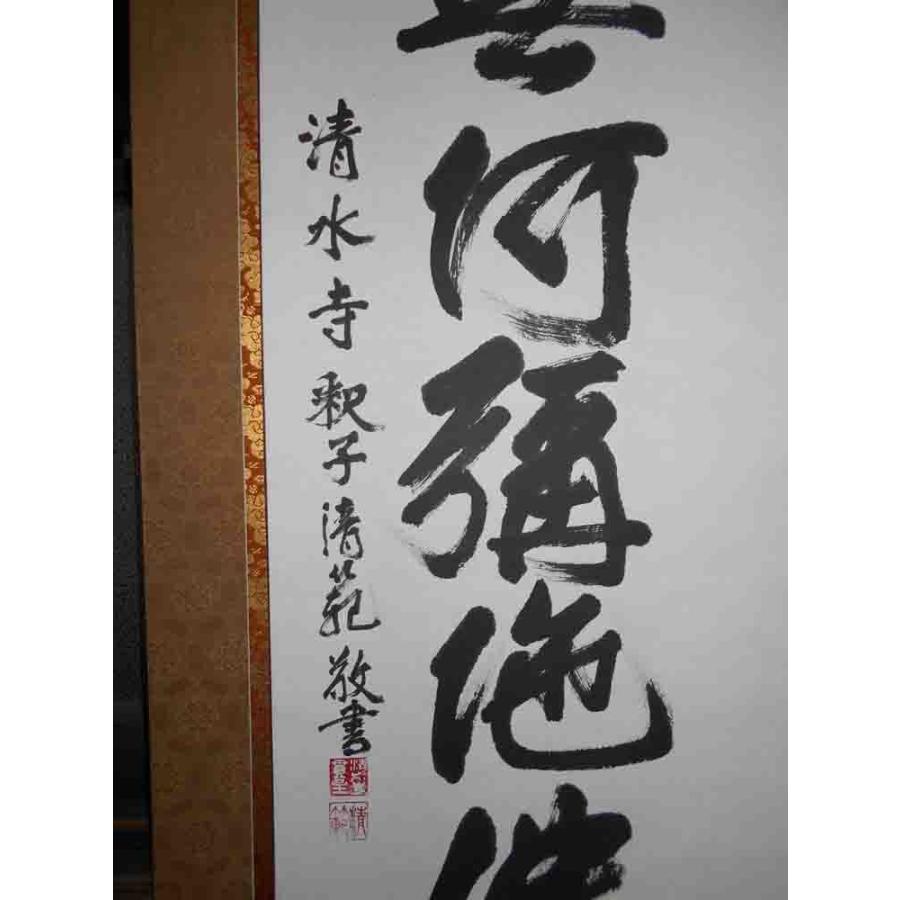 無阿彌陀佛
清水寺 釈子清範 敬書